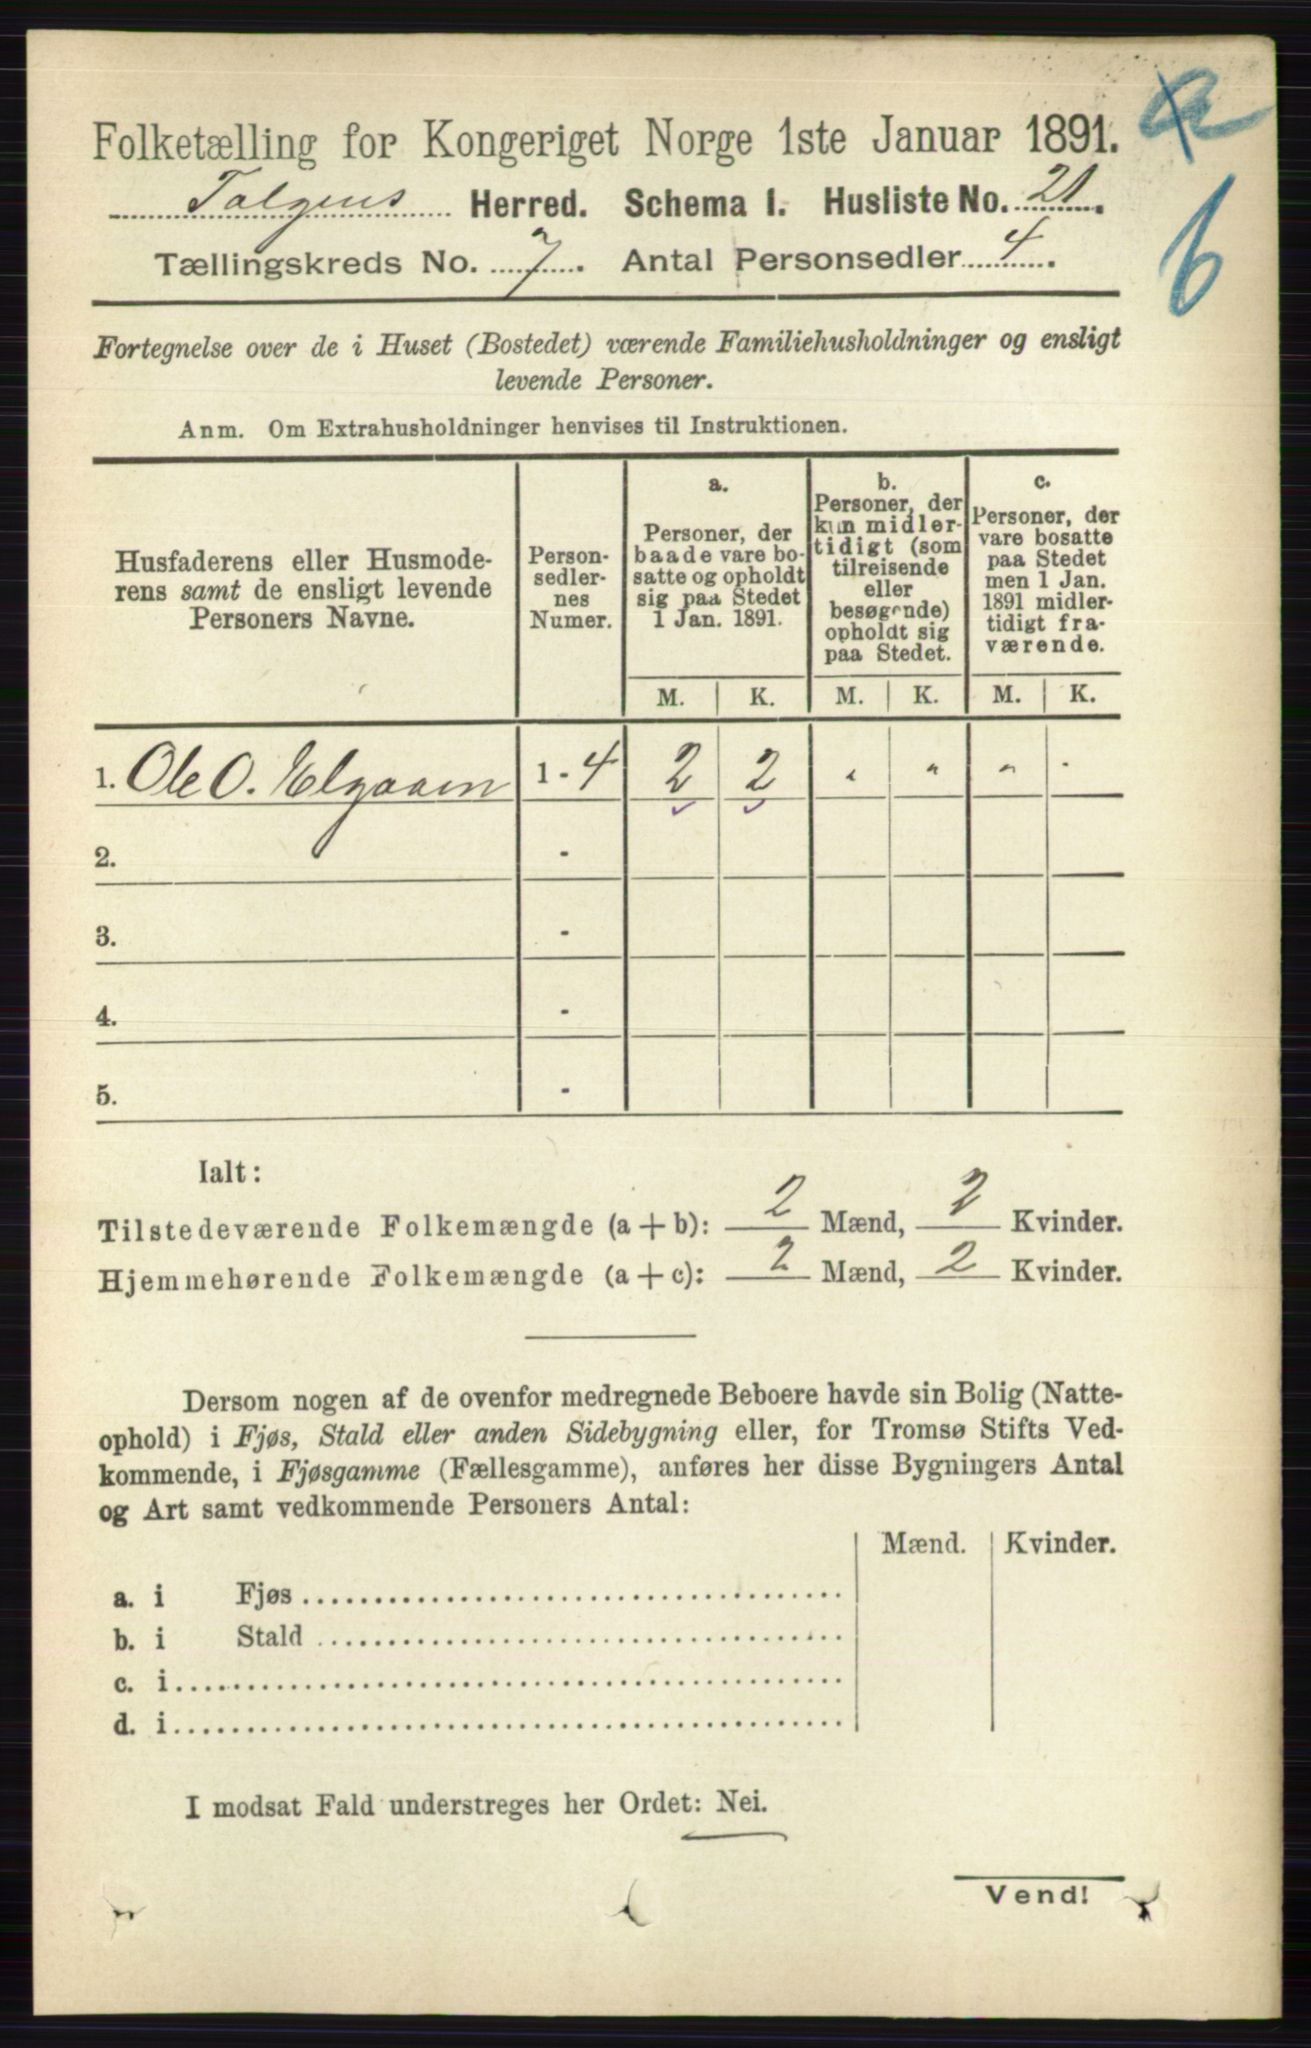 a
b
Folketælling for Kongeriget Norge 1ste Januar 1891.
Tolgens Herred. Schema 1. Husliste No. 21.
Tællingskreds No. 7. Antal Personsedler 4.
Fortegnelse over de i Huset (Bostedet) værende Familiehusholdninger og ensligt
levende Personer.
Anm. Om Extrahusholdninger henvises til Instruktionen.
Husfaderens eller Husmode-
rens samt de ensligt levende
Personers Navne.
Person-
sedler-
nes
Numer.
a.
Personer, der
baade vare bo-
satte og opholdt
sig paa Stedet
1 Jan. 1891.
b.
Personer, der
kun midler-
tidigt (som
tilreisende
eller
besøgende)
opholdt sig
paa Stedet.
c.
Personer, der
vare bosatte
paa Stedet
men 1 Jan.
1891 midler-
tidigt fra-
værende.
M. K. M. K. M. K.
1. Ole O. Elgaaen 1 - 4 2 2 " " " "
2. -
3. -
4. -
5. -
Ialt:
Tilstedeværende Folkemængde (a + b): 2 Mænd, 2 Kvinder.
Hjemmehørende Folkemængde (a + c): 2 Mænd, 2 Kvinder.
Dersom nogen af de ovenfor medregnede Beboere havde sin Bolig (Natte-
ophold) i Fjøs, Stald eller anden Sidebygning eller, for Tromsø Stifts Ved-
kommende, i Fjøsgamme (Fællesgamme), anføres her disse Bygningers Antal
og Art samt vedkommende Personers Antal:
Mænd. Kvinder.
a. i Fjøs
b. i Stald
c. i
d. i
I modsat Fald understreges her Ordet: Nei.
Vend!